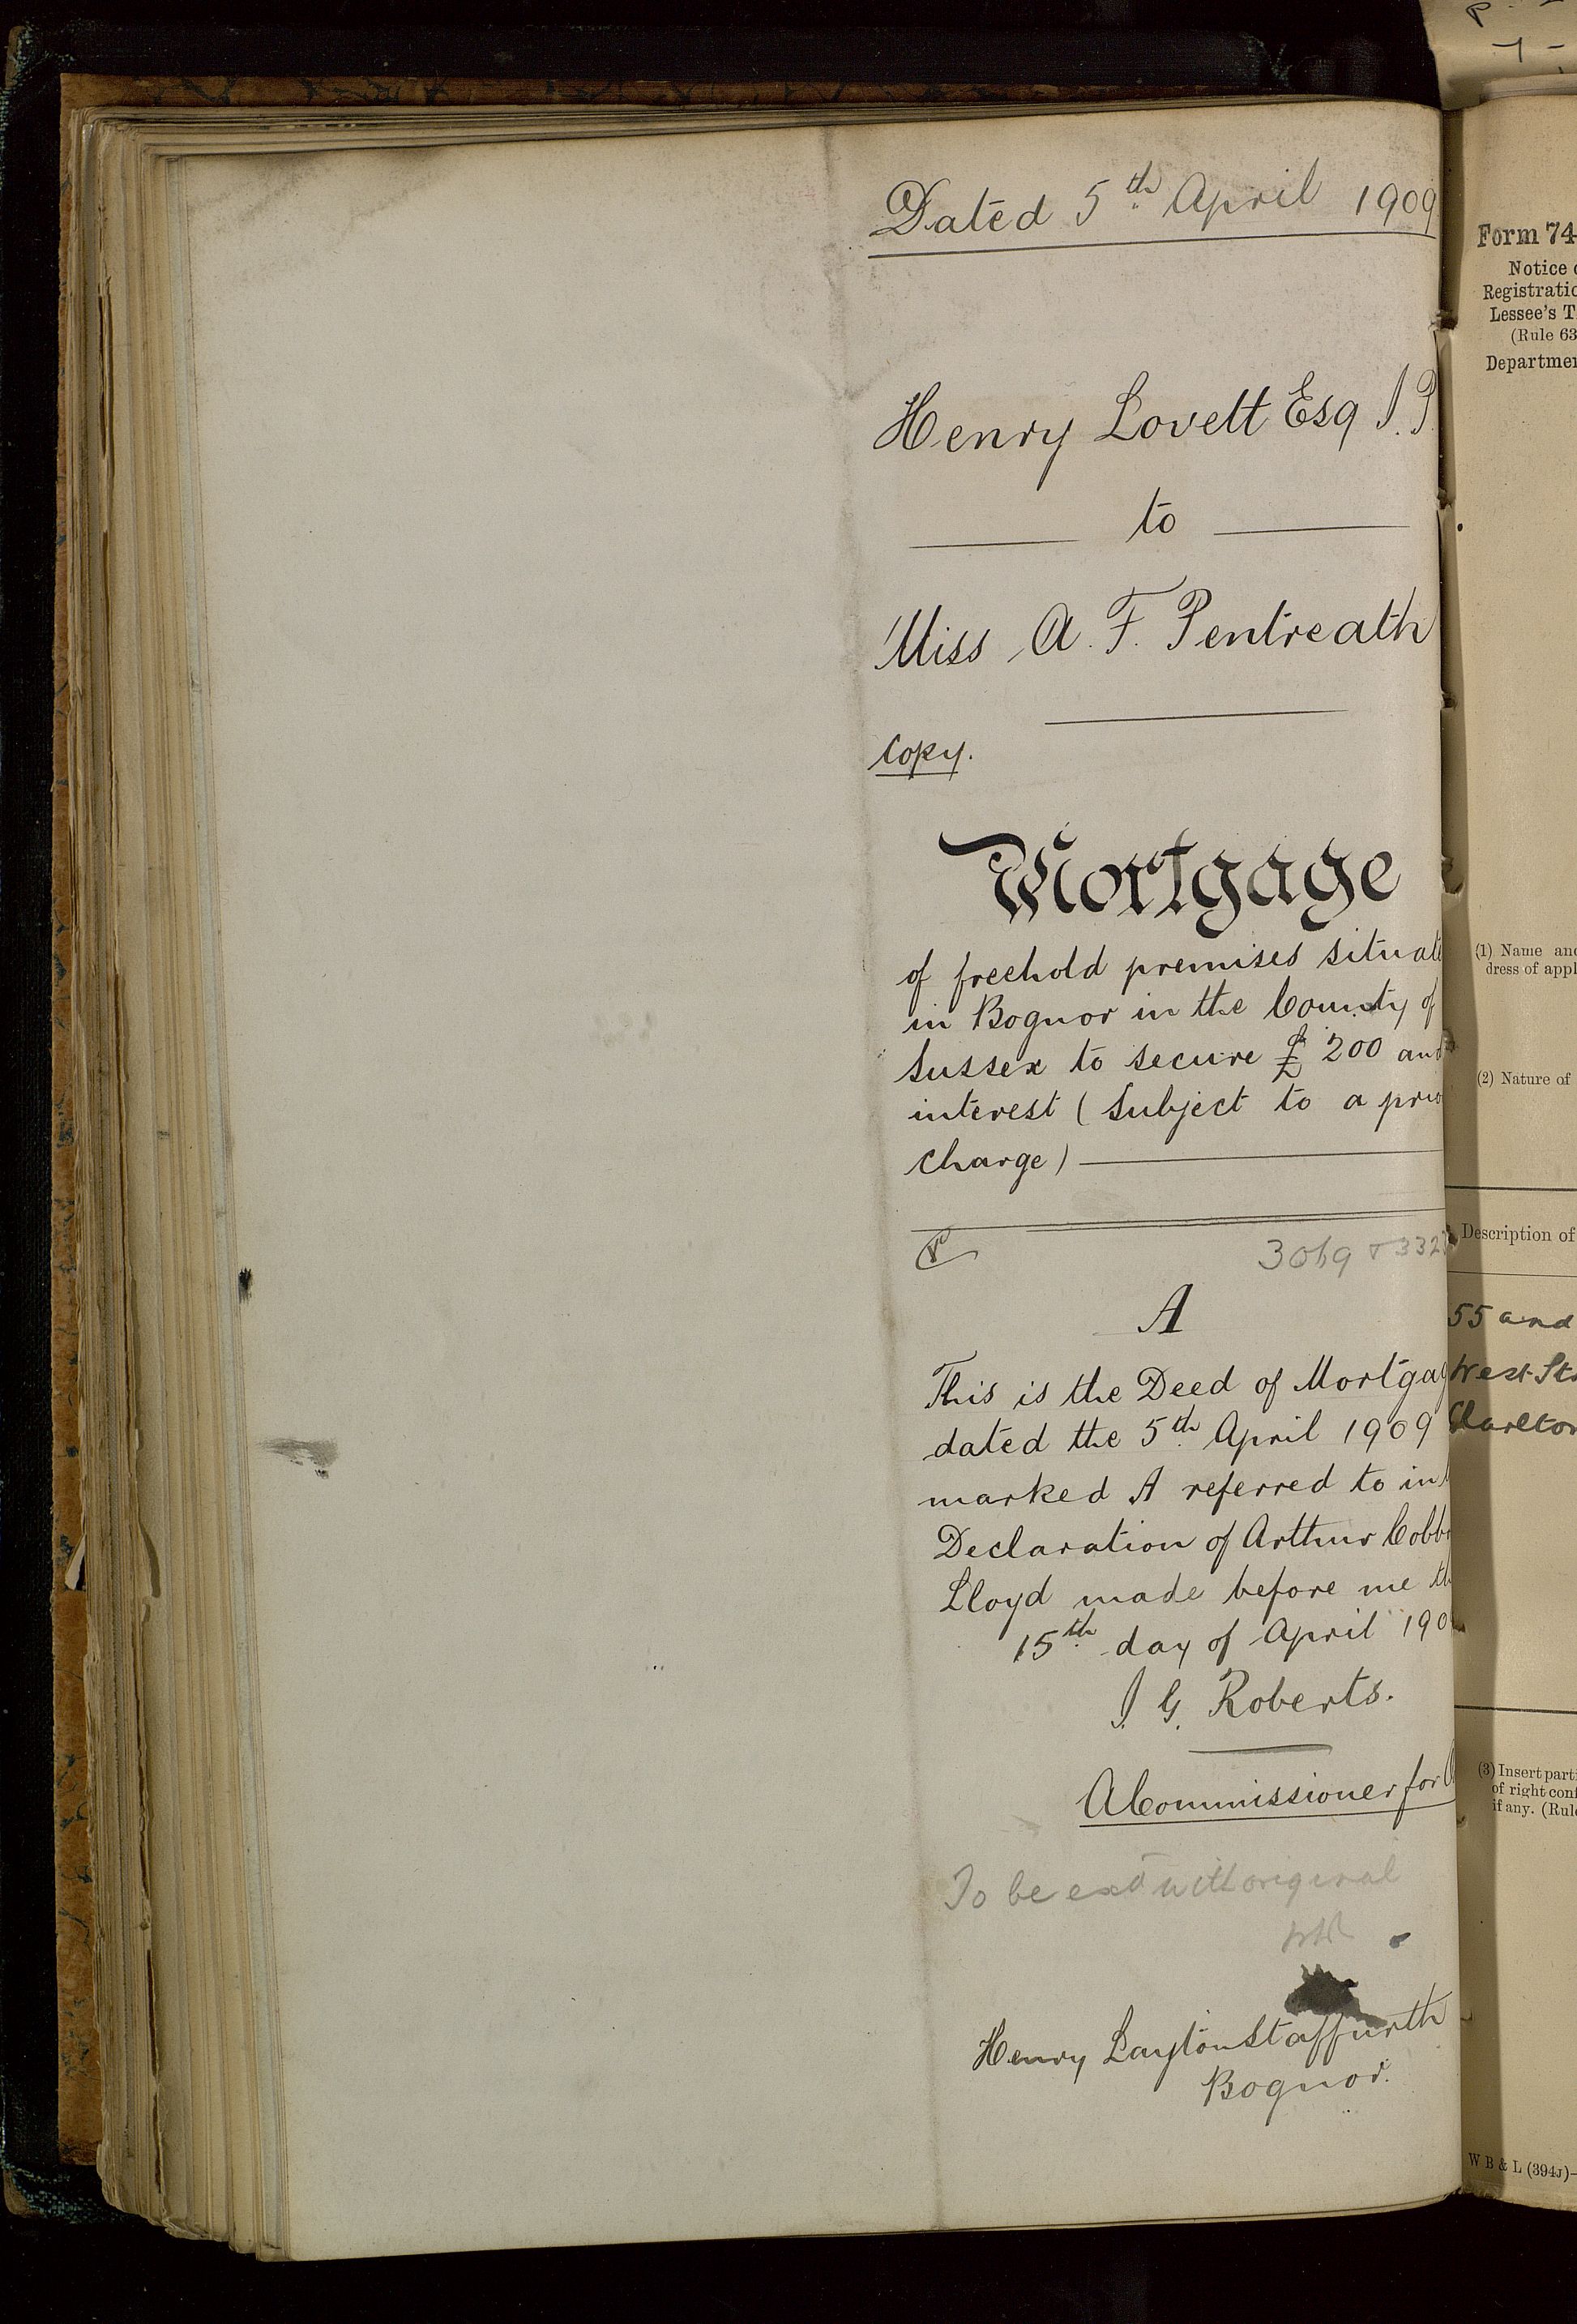 Dated 5th April 1909
Henry Lovett Esq J.P.
to
Miss A. F. Pentreath
Copy.
Mortgage
of freehold premises situat
in Bognor in the County of
Sussex to secure £200 and
interest (Subject to a prio
charge)
3069 & 332
A
This is the Deed of Mortgag
dated the 5th April 1909
marked A referred to in
Declaration of Arthur Cobb
Lloyd made before me th
15th day of April 190
J. G. Roberts.
A Commissioner for
To be exd with original
Henry Layton Staffurth
Bognor.
Form 74
Notice o
Registratio
Lessee's T
(Rule 63
Departmen
(1) Name and
dress of appl
(2) Nature of
Description of
55 and
West St
Carlton
(3) Insert parti
of right conf
if any. (Rule
W B & L (394J)-